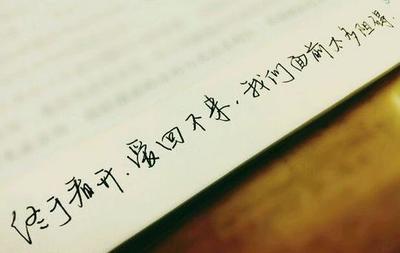 终于看开，爱回不来，我们面前太多阻碍.